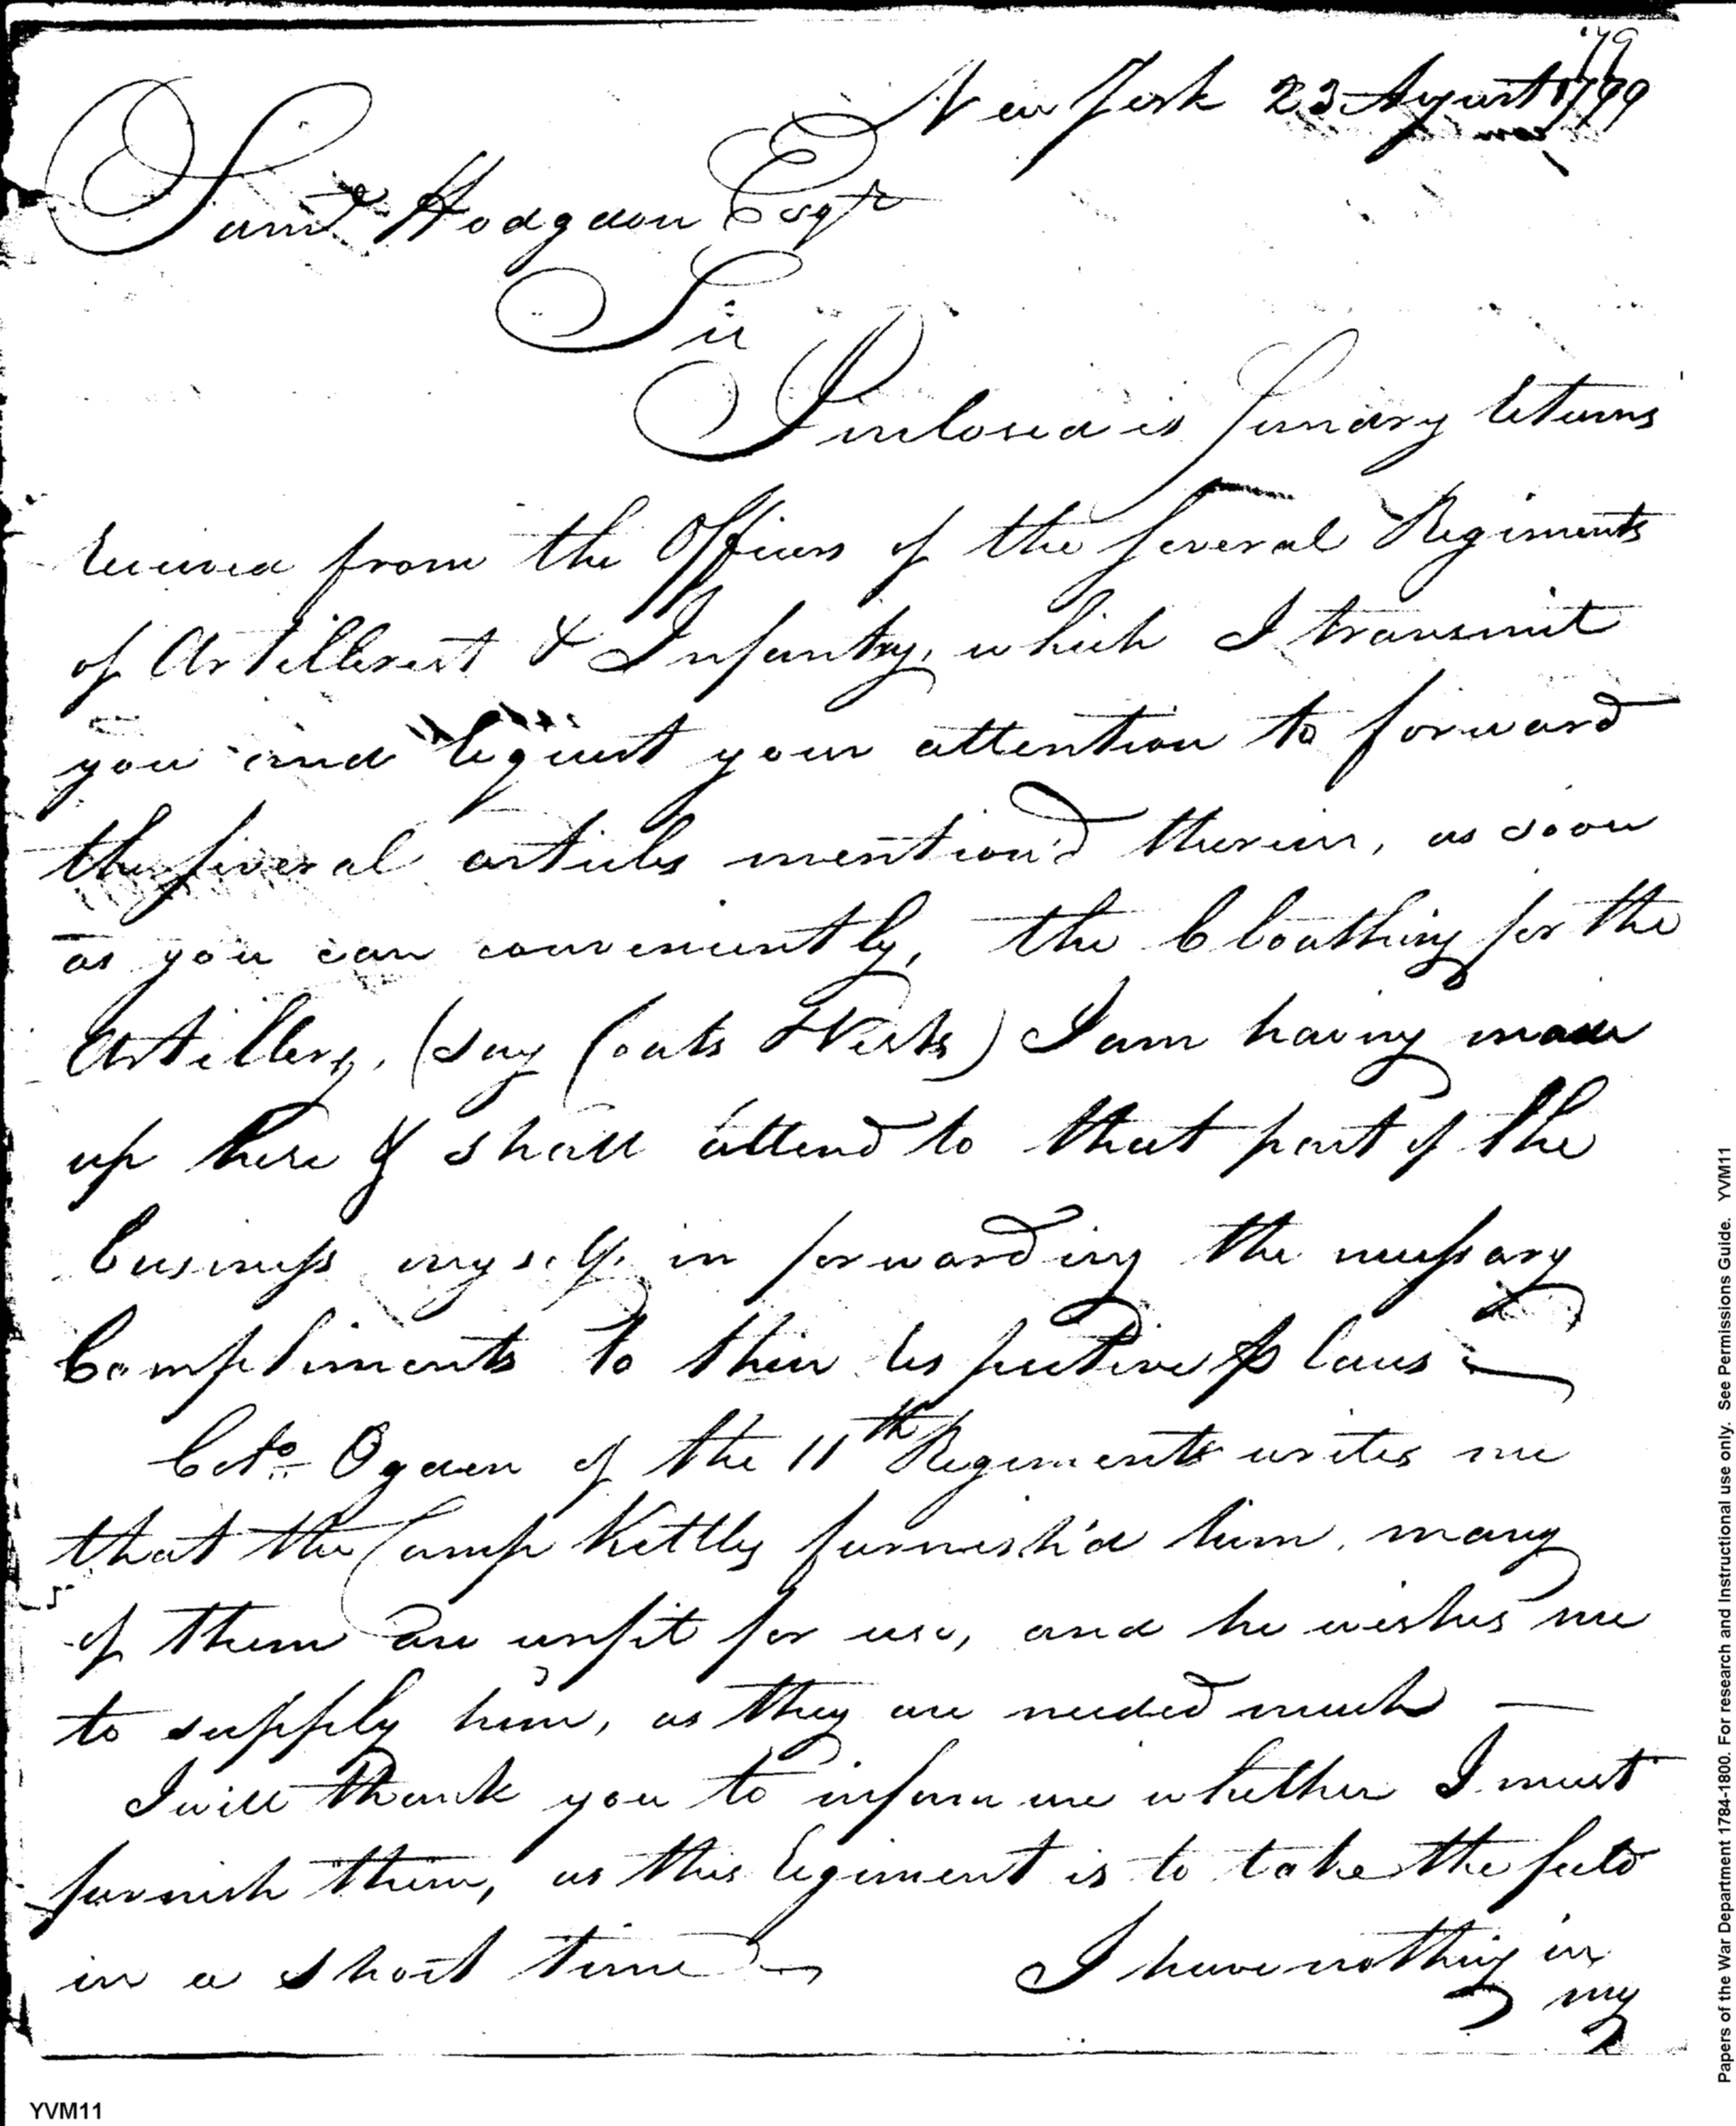 79
New York 23 August 1799
Saml Hodgdon Esqr
Sir
Inclosed is Sundry returns
received from the Officers of the several Regiments
of Artillerist & Infantry, which I transmit
you and request your attention to forward
the several articles mention'd therein, as soon
as you can conveniently, the Cloathing for the
Artillery, (say Coats & Vests) I am having made
up here & shall attend to that part of the
business myself in forwarding the necessary
Compliments to their respective places
Colo Ogden of the 11th Regiment writes me
that the Camp Kettles furnish'd him, many
of them are unfit for use, and he wishes me
to supply him, as they are needed much —
I will thank you to inform me whether I must
furnish them, as this regiment is to take the field
in a short time — I have nothing in
my
YVM11
Papers of the War Department 1784-1800. For research and instructional use only. See Permissions Guide. YVM11